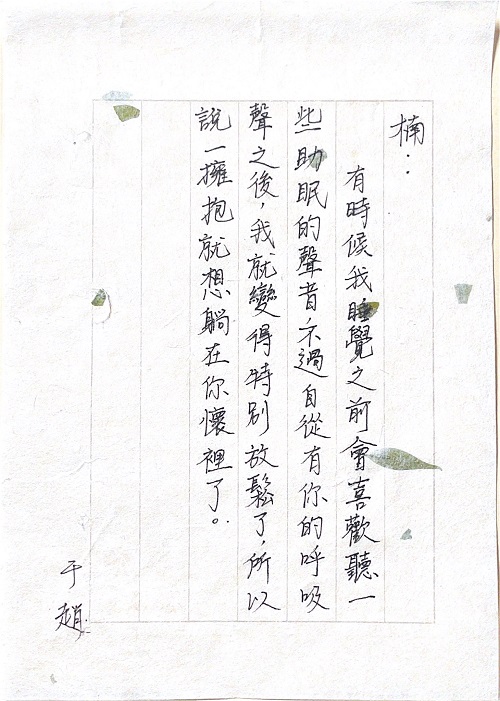 楠：
有時候我睡覺之前會喜歡聽一
些助眠的聲音不過自從有你的呼吸
聲之後，我就變得特別放鬆了，所以
說一擁抱就想躺在你懷裡了。
于趙